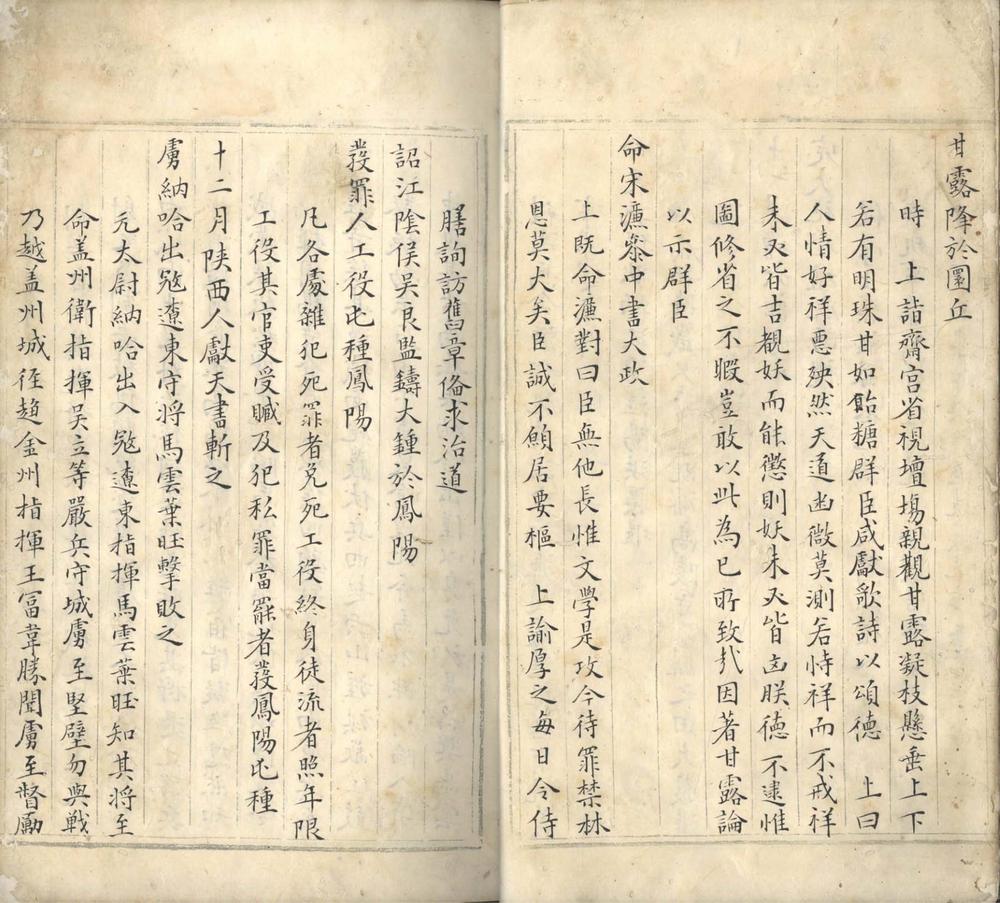 甘露降於圜丘
時　上詣齋宮省視壇場親觀甘露凝枝懸垂上下
若有明珠甘如飴糖群臣咸獻歌詩以頌德　上曰
人情好祥惡殃然天道幽微莫測若恃祥而不戒祥
未必皆吉覩妖而能懲則妖未必皆凶朕德不逮惟
圖修省之不暇豈敢以此為己所致哉因著甘露論
以示群臣
命宋濂叅中書大政
上既命濂對曰臣無他長惟文學是攻今待罪禁林
恩莫大矣臣誠不願居要樞　上諭厚之每日令侍
膳詢訪舊章俻求治道
詔江陰侯吳良監鑄大鍾於鳳陽
發罪人工役屯種鳳陽
凡各處雜犯死罪者免死工役終身徒流者照年限
工役其官吏受贓及犯私罪當罷者發鳳陽屯種
十二月陝西人獻天書斬之
虜納哈出寇遼東守将馬雲葉旺擊敗之
元太尉納哈出入寇遼東指揮馬雲葉旺知其将至
命盖州衛指揮吳立等嚴兵守城虜至堅壁勿與戰
乃越盖州城徑趨金州指揮王冨韋勝聞虜至督勵